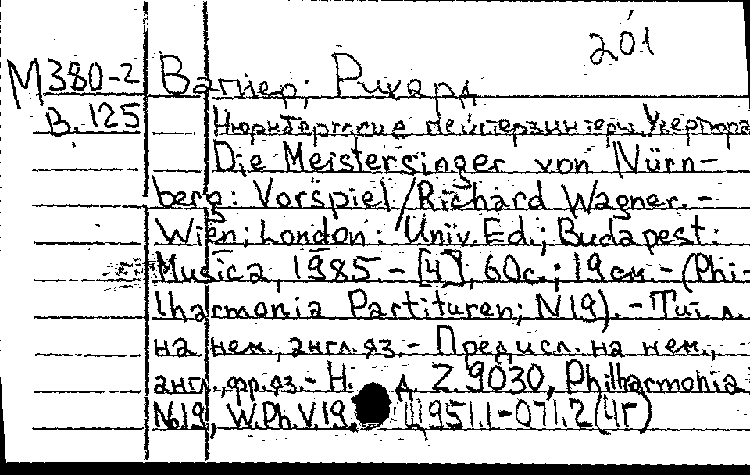 201
М380-2 Вагнер, Рихард
В.125 Нюрнбергские мейстерзингеры. Увертюра
Die Meistersinger von Nürn-
berg: Vorspiel/Richard Wagner. -
Wien; London: Univ. Ed.; Budapest:
Musica, 1985 - [4], 60с.; 19см. - (Phi-
lharmonia Partituren; N19). - Тит. л.
на нем., англ. яз. - Предисл. на нем.,
англ., фр. яз. - Н. д. Z. 9030, Philharmonia
№19, W.Ph.V.19. Щ951.1-071.2(4Г)